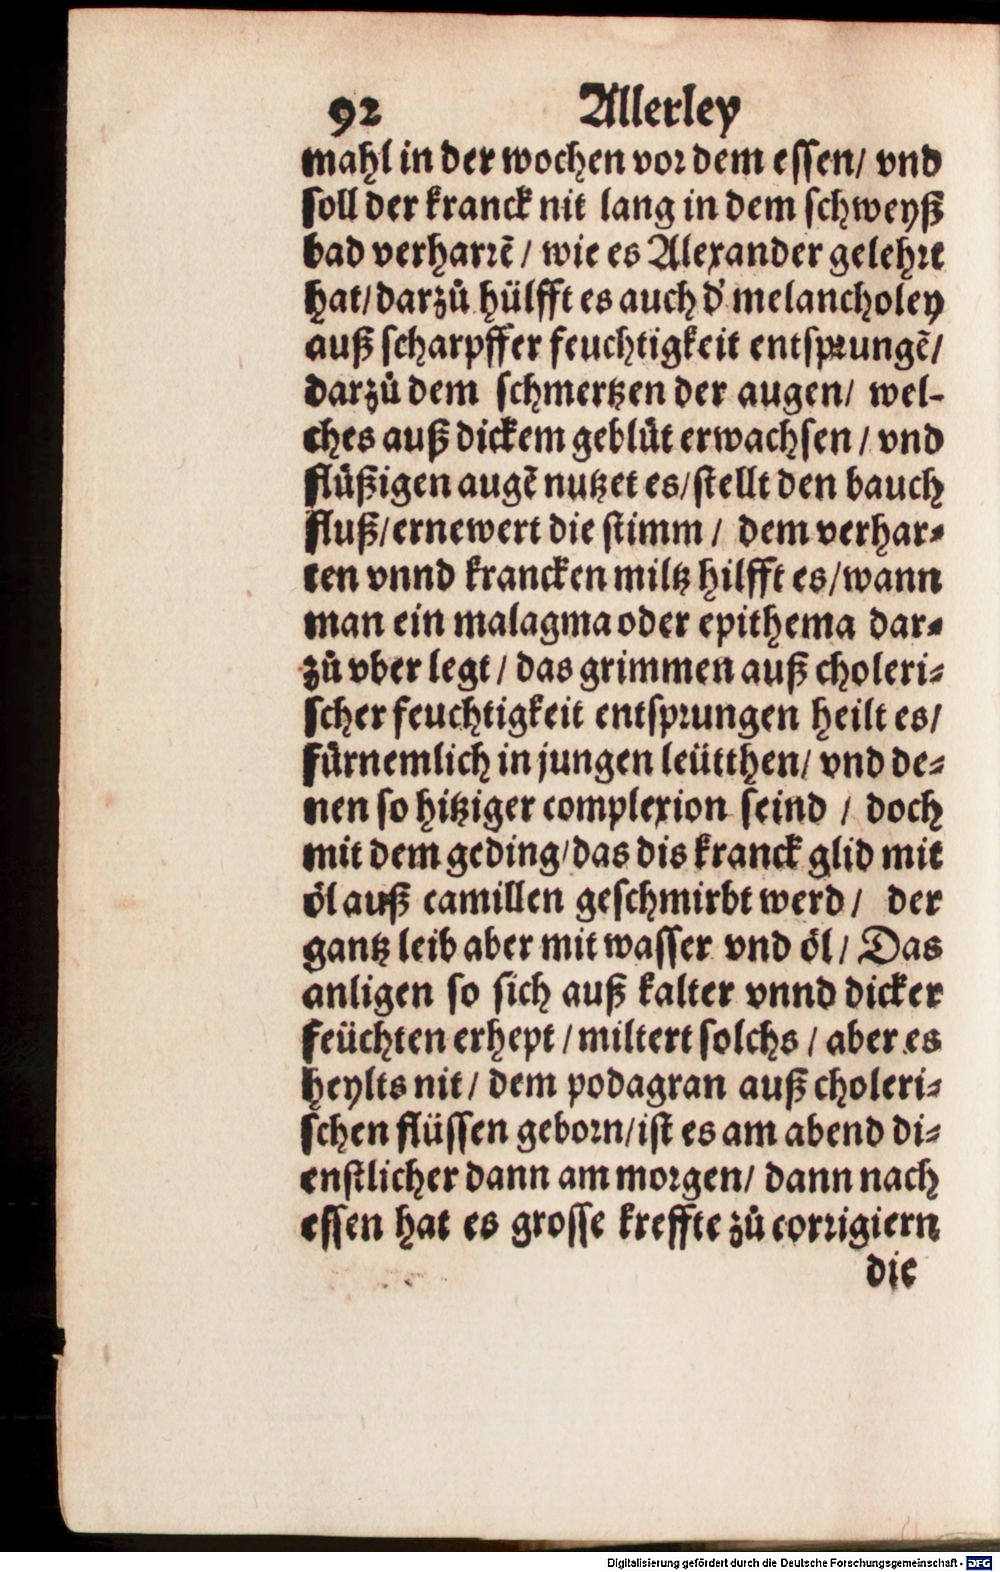 92 Allerley
mahl in der wochen vor dem essen/ vnd
soll der kranck nit lang in dem schweyß
bad verharrē/ wie es Alexander gelehrt
hat/ darzů hülfft es auch d' melancholey
auß scharpffer feuchtigkeit entsprungē/
darzů dem schmertzen der augen/ wel-
ches auß dickem geblůt erwachsen/ vnd
flüßigen augē nutzet es/ stellt den bauch
fluß/ ernewert die stimm/ dem verhar-
ten vnnd krancken miltz hilfft es/ wann
man ein malagma oder epithema dar-
zů vber legt/ das grimmen auß choleri-
scher feuchtigkeit entsprungen heilt es/
fürnemlich in jungen leütthen/ vnd de-
nen so hitziger complexion seind/ doch
mit dem geding/ das dis kranck glid mit
öl auß camillen geschmirbt werd/ der
gantz leib aber mit wasser vnd öl/ Das
anligen so sich auß kalter vnnd dicker
feüchten erhept/ miltert solchs/ aber es
heylts nit/ dem podagran auß choleri-
schen flüssen geborn/ ist es am abend di-
enstlicher dann am morgen/ dann nach
essen hat es grosse kreffte zů corrigiern
die
Digitalisierung gefördert durch die Deutsche Forschungsgemeinschaft - DFG